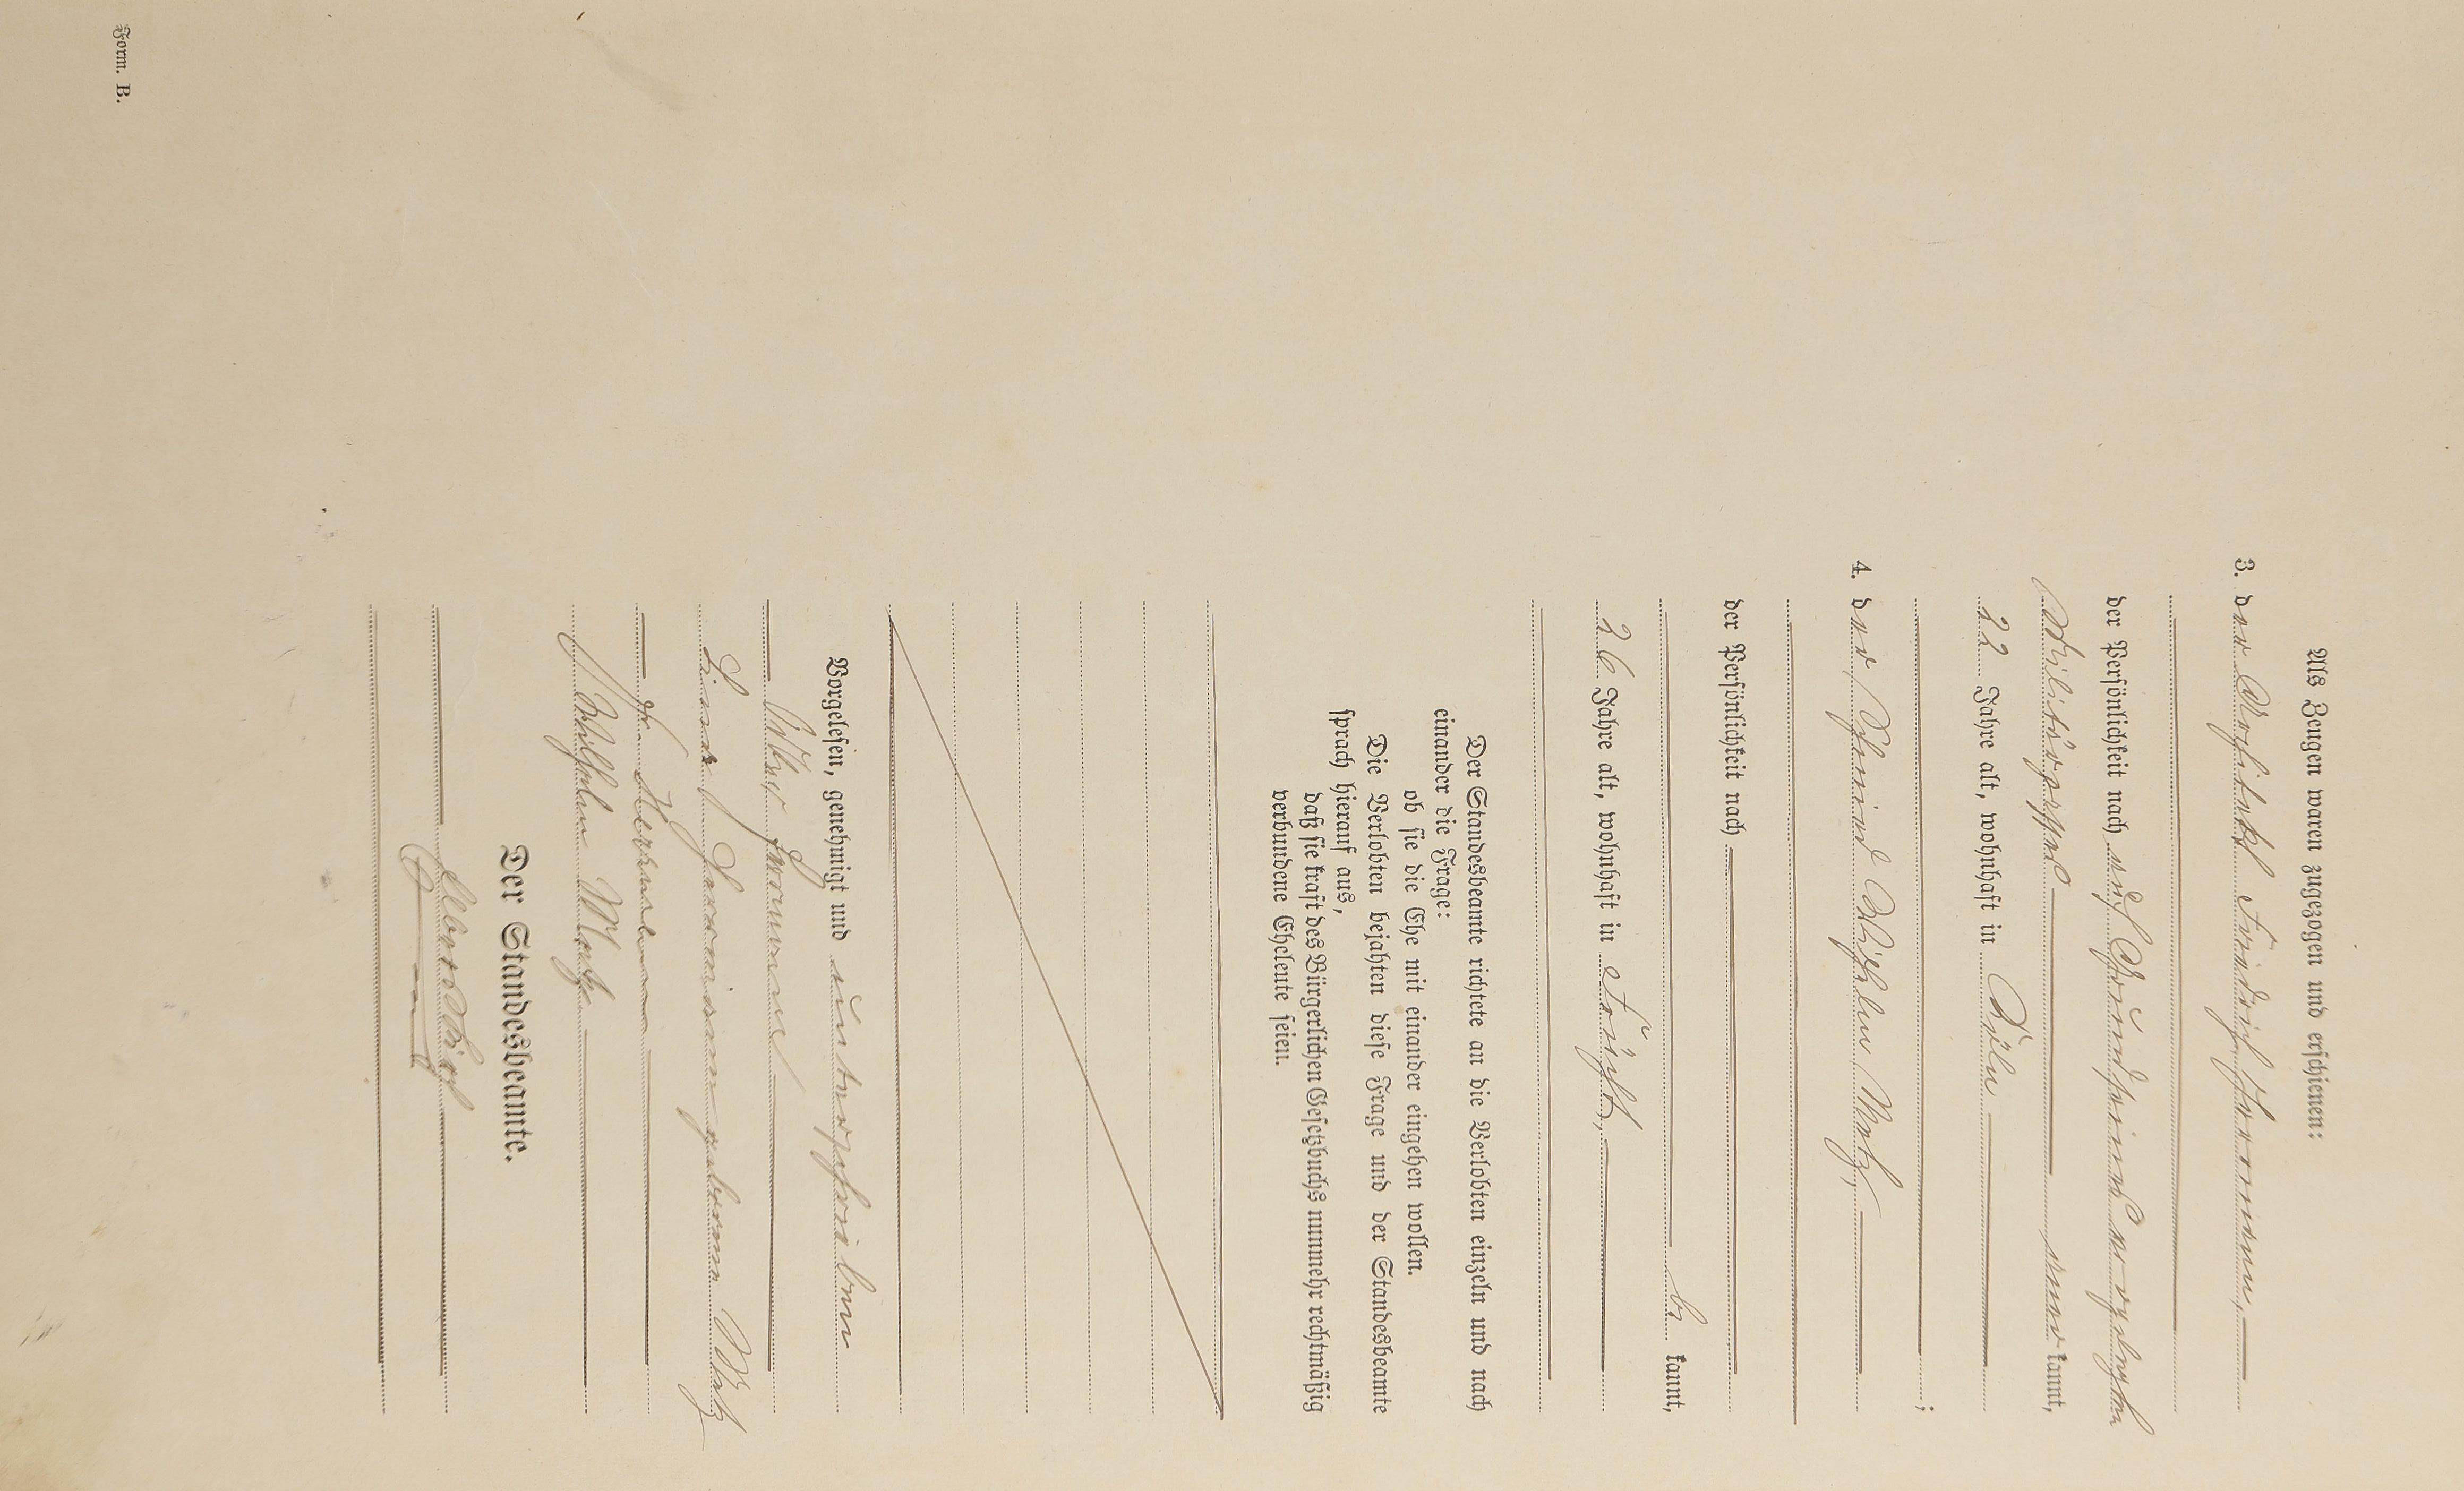 Als Zeugen waren zugezogen und erschienen:
3. der Architekt Friedrich Herrmann,
der Persönlichkeit nach auf Grund seines vorgelegten
Militärpasses anerkannt,
22 Jahre alt, wohnhaft in Cöln
;
4. der Schmied Wilhelm Metz,
der Persönlichkeit nach
bekannt,
26 Jahre alt, wohnhaft in
Der Standesbeamte richtete an die Verlobten einzeln und nach
einander die Frage:
ob sie die Ehe mit einander eingehen wollen.
Die Verlobten bejahten diese Frage und der Standesbeamte
sprach hierauf aus,
daß sie kraft des Bürgerlichen Gesetzbuchs nunmehr rechtmäßig
verbundene Eheleute seien.
Vorgelesen, genehmigt und unterschrieben
Herrmann
Herrmann geborene Metz
Fr. Herrmann
Wilhelm Metz
Der Standesbeamte.
Form. B.